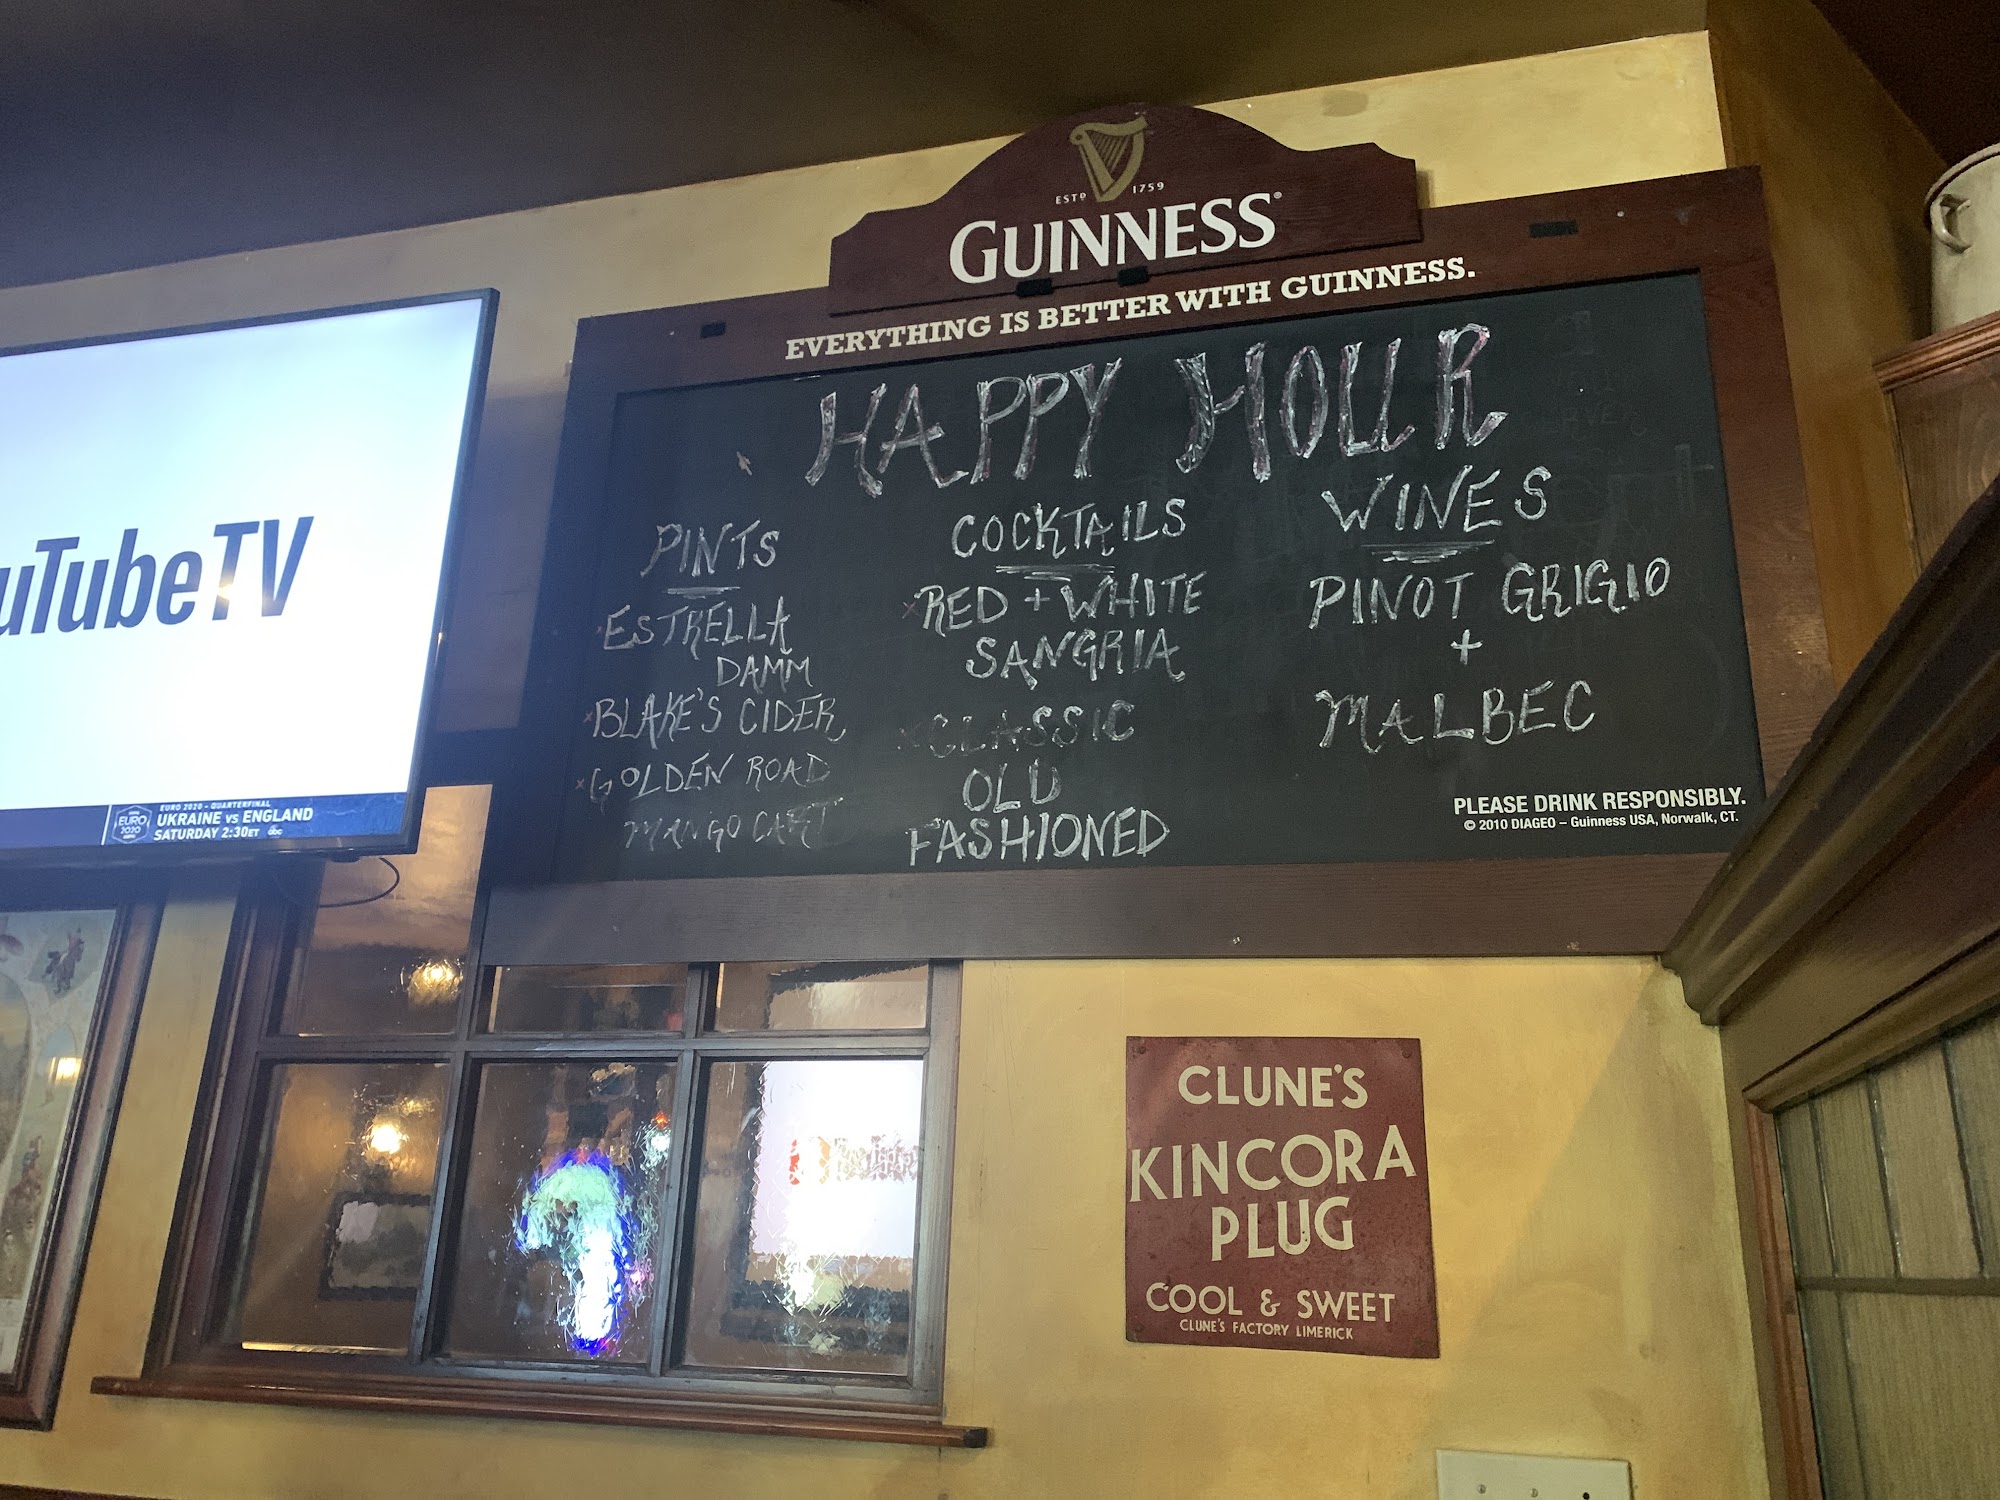 ESTD 1759
GUINNESS®
EVERYTHING IS BETTER WITH GUINNESS.
HAPPY HOUR
PINTS
ESTRELLA
DAMM
BLAKE'S CIDER
GOLDEN ROAD
MANGO CART
COCKTAILS
RED + WHITE
SANGRIA
CLASSIC
OLD
FASHIONED
WINES
PINOT GRIGIO
+
MALBEC
PLEASE DRINK RESPONSIBLY.
© 2010 DIAGEO – Guinness USA, Norwalk, CT.
uTubeTV
EURO 2020 - QUARTERFINAL
EURO
2020
UKRAINE VS ENGLAND
SATURDAY 2:30ET abc
CLUNE'S
KINCORA
PLUG
COOL & SWEET
CLUNE'S FACTORY LIMERICK